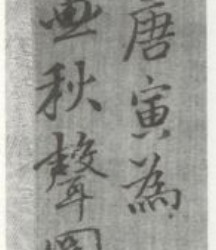 唐寅為
画秋聲圖